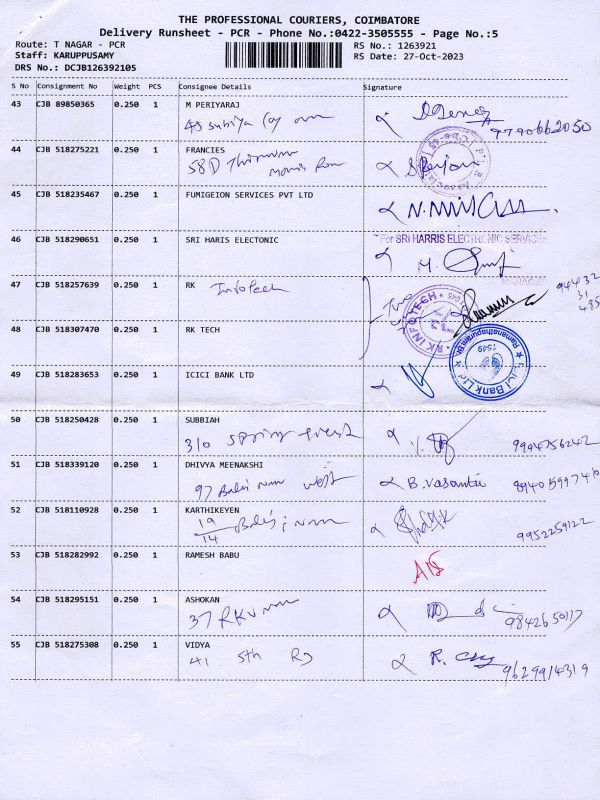 THE PROFESSIONAL COURIERS, COIMBATORE
Delivery Runsheet - PCR - Phone No.:0422-3505555 - Page No.:5
Route: T NAGAR - PCR
RS No.: 1263921
Staff: KARUPPUSAMY
RS Date: 27-Oct-2023
DRS No.: DCJB126392105
S No Consignment No Weight PCS Consignee Details Signature
43 CJB 89850365 0.250 1 M PERIYARAJ
9790662050
44 CJB 518275221 0.250 1 FRANCIES
58D
45 CJB 518235467 0.250 1 FUMIGEION SERVICES PVT LTD
46 CJB 518290651 0.250 1 SRI HARIS ELECTONIC
For SRI HARRIS ELECTRONIC SERVICE
MANAGER
47 CJB 518257639 0.250 1 RK Infotech
94432
31
485
RK INFOTECH
48 CJB 518307470 0.250 1 RK TECH
ICICI Bank Ltd
Ramanathapuram Br.
1549
49 CJB 518283653 0.250 1 ICICI BANK LTD
50 CJB 518250428 0.250 1 SUBBIAH
310 spring
9994756242
51 CJB 518339120 0.250 1 DHIVYA MEENAKSHI
97 west
B. Vasantu
52 CJB 518110928 0.250 1 KARTHIKEYEN
19/14
9952259122
53 CJB 518282992 0.250 1 RAMESH BABU
54 CJB 518295151 0.250 1 ASHOKAN
37
9842650117
55 CJB 518275308 0.250 1 VIDYA
41 5th RD
9629914319